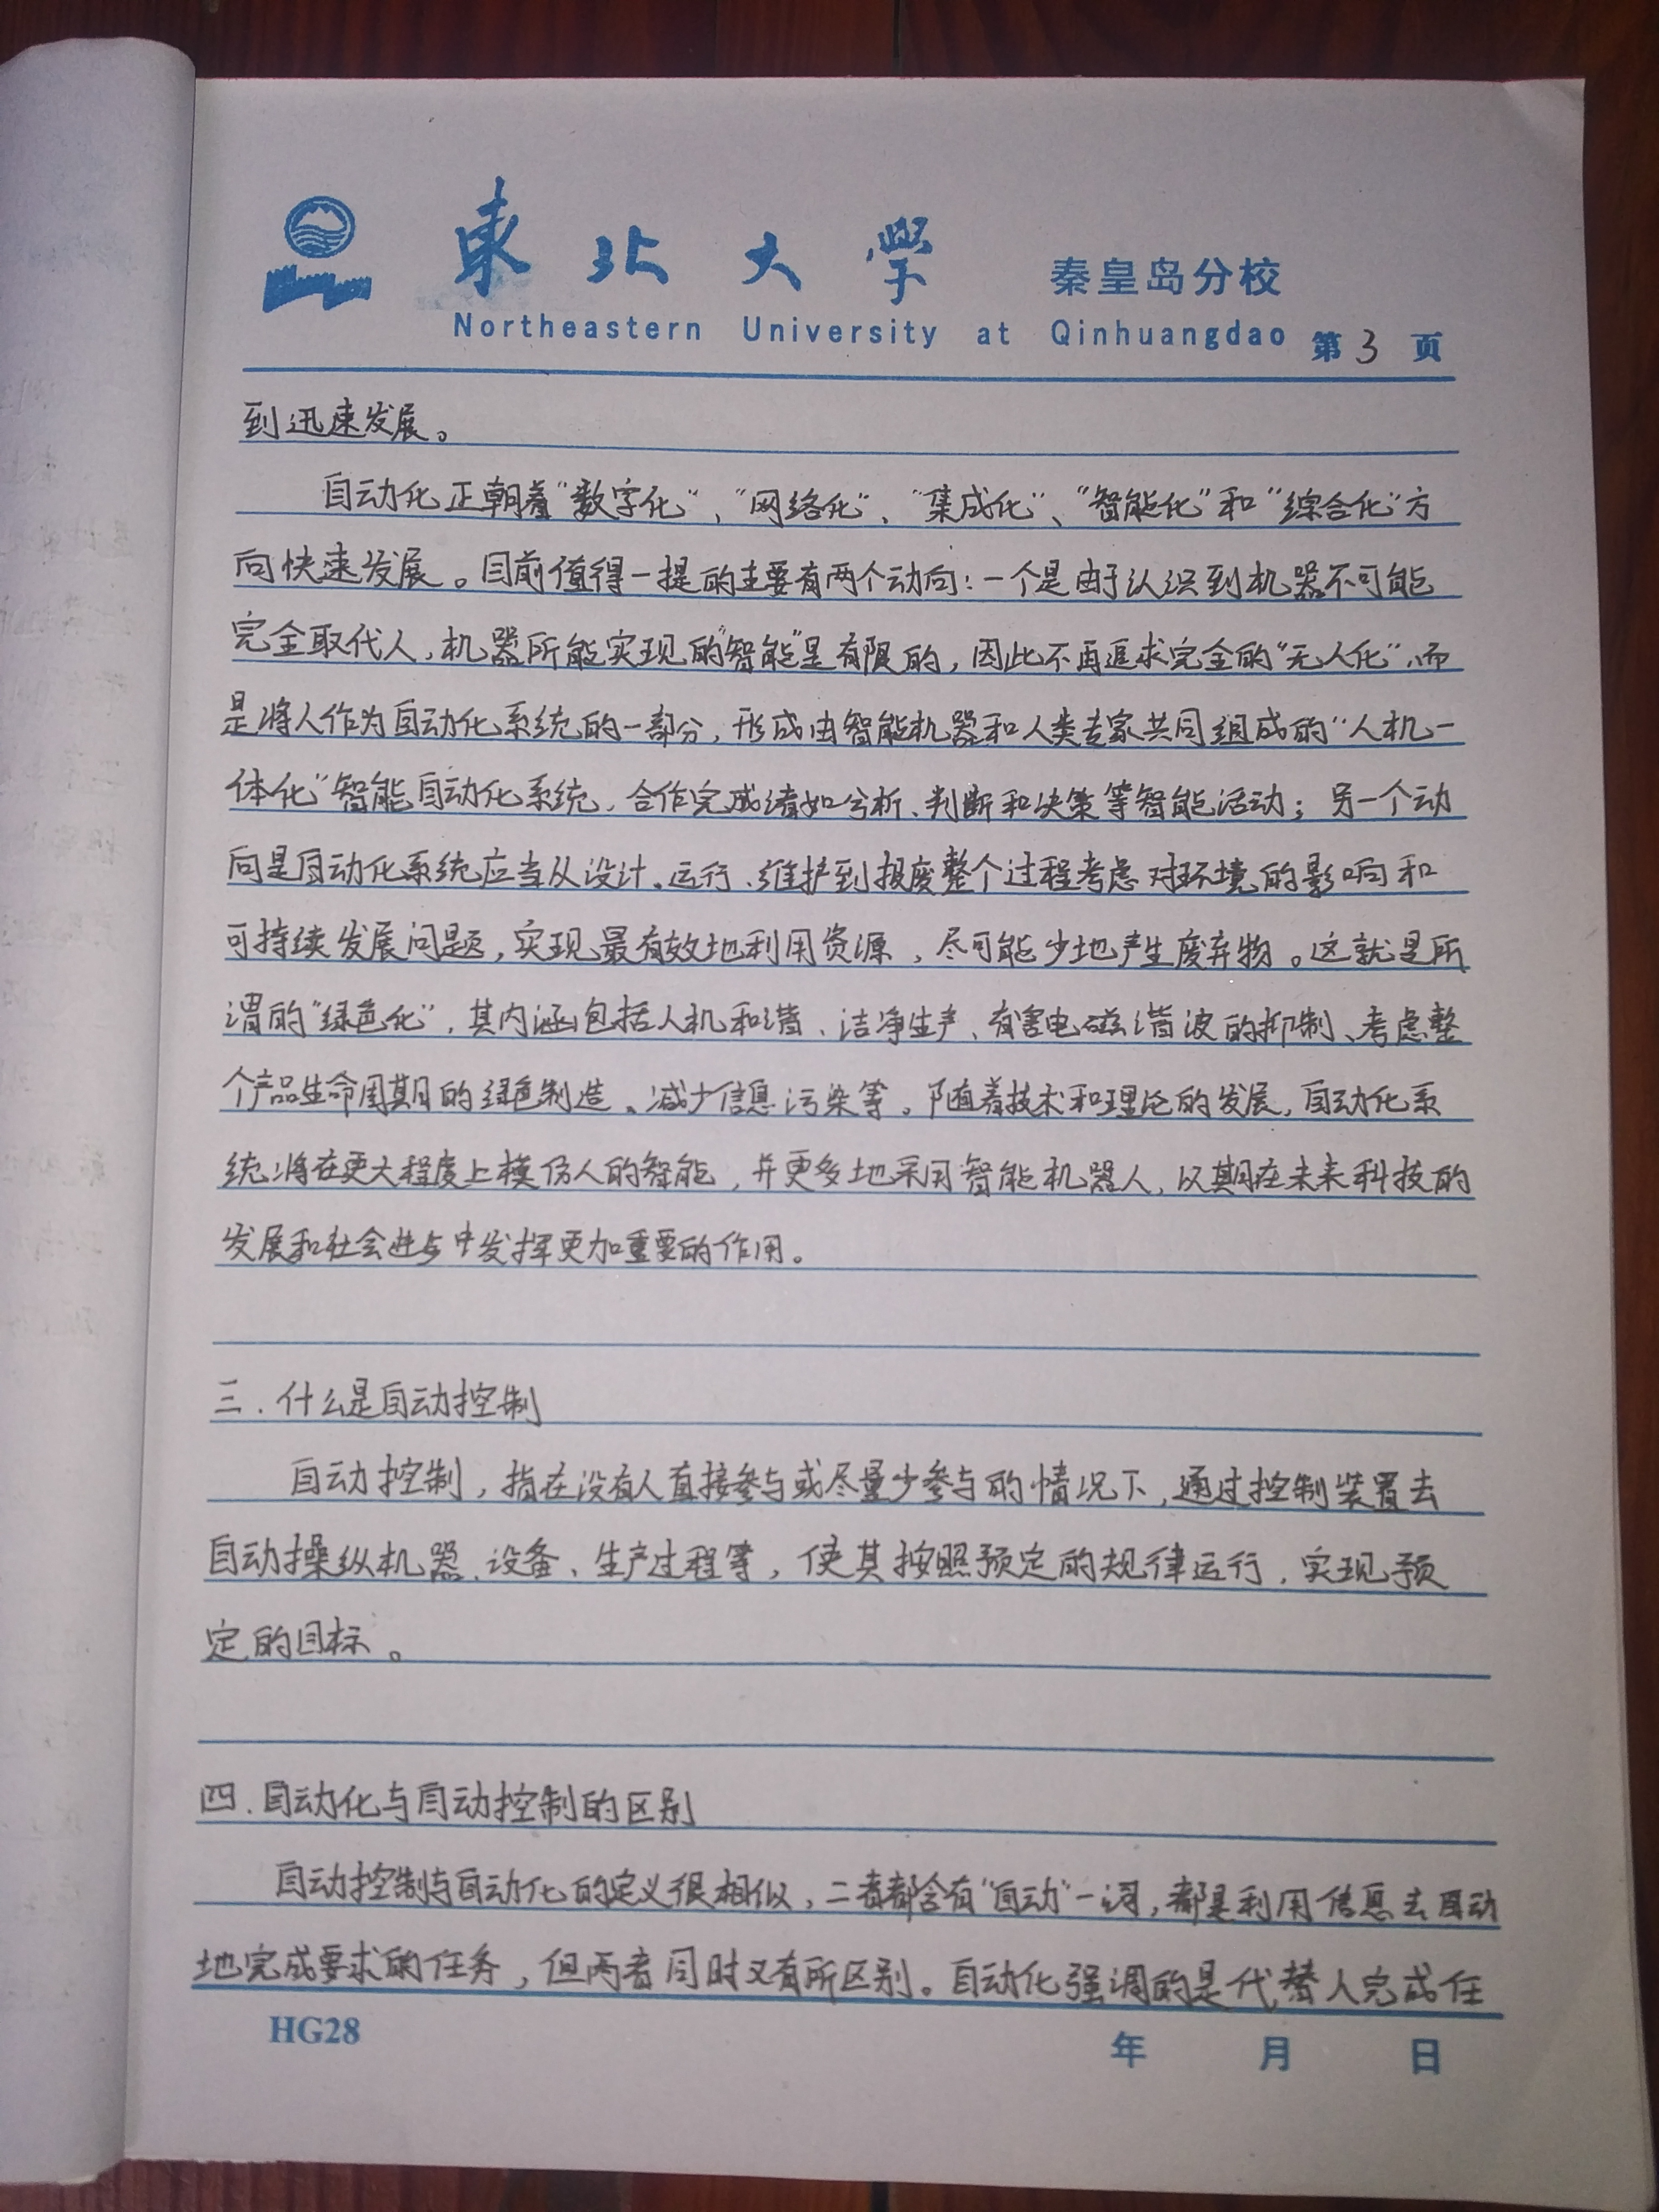 東北大學 秦皇岛分校
Northeastern University at Qinhuangdao 第3页
到迅速发展。
自动化正朝着"数字化"、"网络化"、"集成化"、"智能化"和"综合化"方
向快速发展。目前值得一提的主要有两个动向：一个是由于认识到机器不可能
完全取代人，机器所能实现的"智能"是有限的，因此不再追求完全的"无人化"，而
是将人作为自动化系统的一部分，形成由智能机器和人类专家共同组成的"人机一
体化"智能自动化系统，合作完成诸如分析、判断和决策等智能活动；另一个动
向是自动化系统应当从设计、运行、维护到报废整个过程考虑对环境的影响和
可持续发展问题，实现最有效地利用资源，尽可能少地产生废弃物。这就是所
谓的"绿色化"，其内涵包括人机和谐、洁净生产、有害电磁谐波的抑制、考虑整
个产品生命周期的绿色制造、减少信息污染等。随着技术和理论的发展，自动化系
统将在更大程度上模仿人的智能，并更多地采用智能机器人，以期在未来科技的
发展和社会进步中发挥更加重要的作用。
三.什么是自动控制
自动控制，指在没有人直接参与或尽量少参与的情况下，通过控制装置去
自动操纵机器、设备、生产过程等，使其按照预定的规律运行，实现预
定的目标。
四.自动化与自动控制的区别
自动控制与自动化的定义很相似，二者都含有"自动"一词，都是利用信息去自动
地完成要求的任务，但两者同时又有所区别。自动化强调的是代替人完成任
HG28 年 月 日